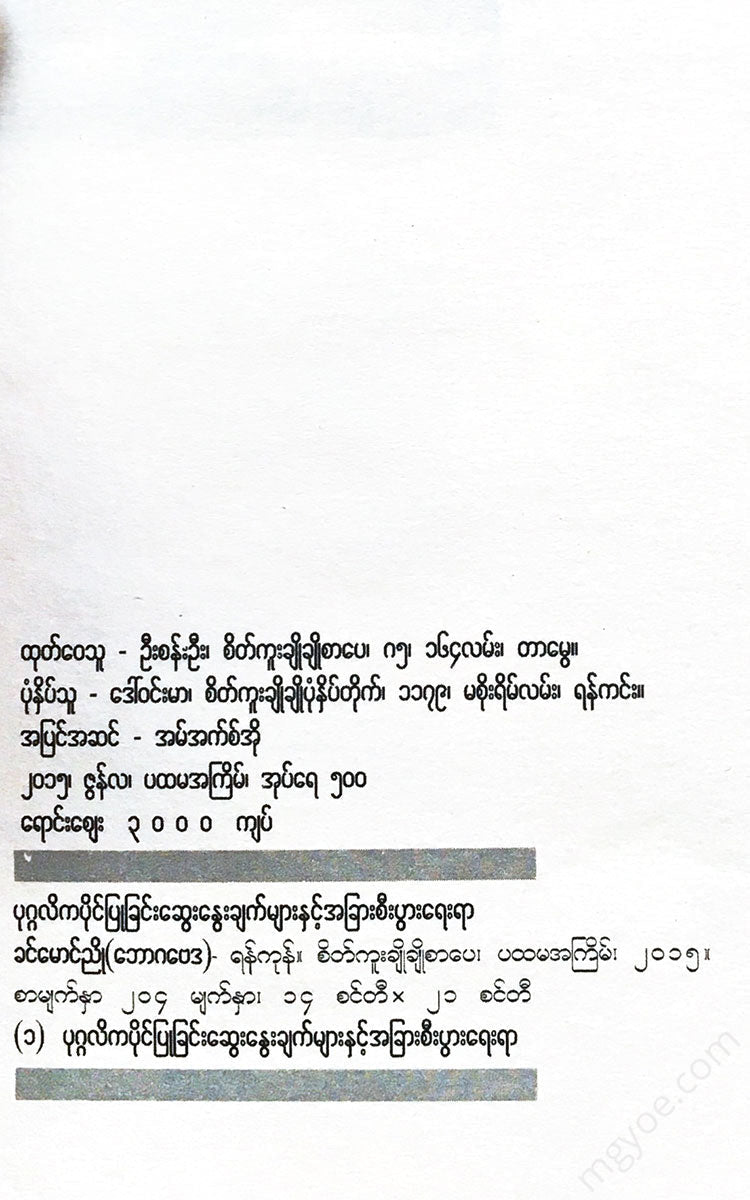 ထုတ်ဝေသူ - ဦးစန်းဦး၊ စိတ်ကူးချိုချိုစာပေ၊ ဂ၅၊ ၁၆၄လမ်း၊ တာမွေ။
ပုံနှိပ်သူ - ဒေါ်ဝင်းမာ၊ စိတ်ကူးချိုချိုပုံနှိပ်တိုက်၊ ၁၁၇၉၊ မစိုးရိမ်လမ်း၊ ရန်ကင်း။
အပြင်အဆင် - အမ်အက်စ်အို
၂၀၁၅၊ ဇွန်လ၊ ပထမအကြိမ်၊ အုပ်ရေ ၅၀၀
ရောင်းစျေး ၃၀၀၀ ကျပ်
ပုဂ္ဂလိကပိုင်ပြုခြင်းဆွေးနွေးချက်များနှင့်အခြားစီးပွားရေးရာ
ခင်မောင်ညို(ဘောဂဗေဒ)- ရန်ကုန်။ စိတ်ကူးချိုချိုစာပေ၊ ပထမအကြိမ်၊ ၂၀၁၅။
စာမျက်နှာ ၂၀၄ မျက်နှာ၊ ၁၄ စင်တီ× ၂၁ စင်တီ
(၁) ပုဂ္ဂလိကပိုင်ပြုခြင်းဆွေးနွေးချက်များနှင့်အခြားစီးပွားရေးရာ
mgyoe.com